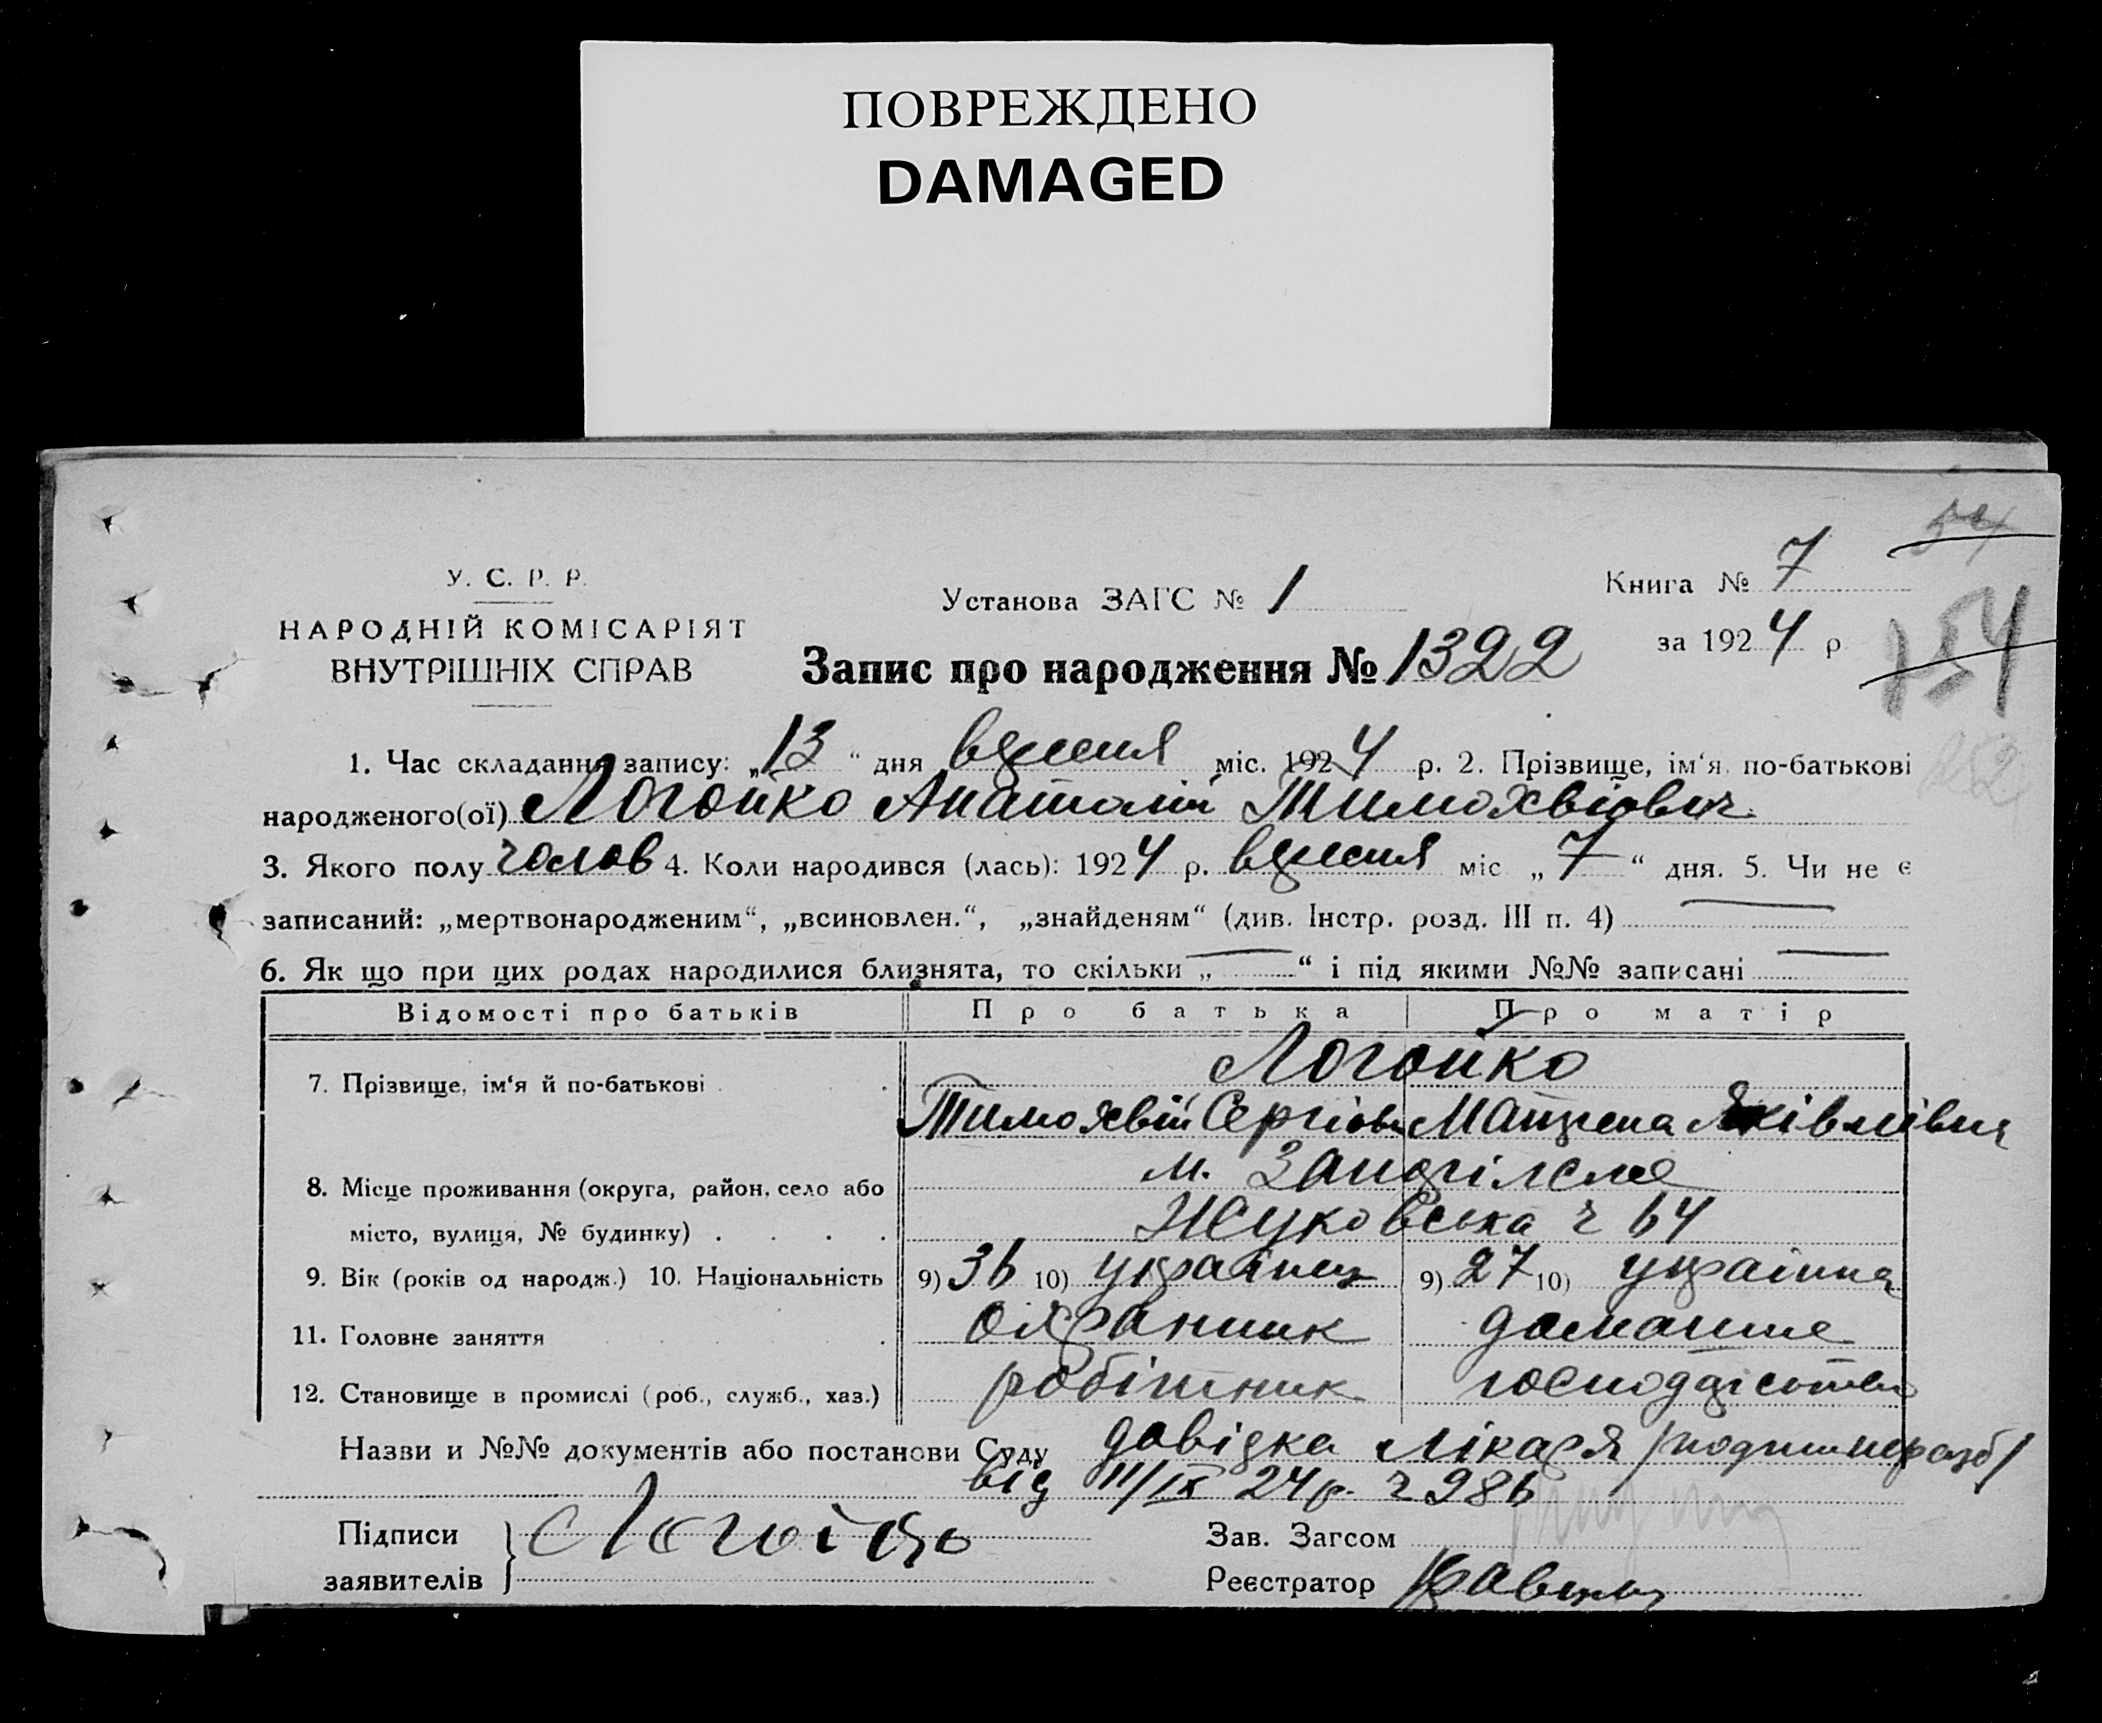 ПОВРЕЖДЕНО
DAMAGED
54
У. С. Р. Р.
НАРОДНІЙ КОМІСАРІЯТ
ВНУТРІШНІХ СПРАВ
Установа ЗАГС № 1
Книга № 7
за 1924 р
154
Запис про народження № 1322
1. Час складання запису: „13“ дня вересня міс. 1924 р. 2. Прізвище, ім‘я, по-батькові
252
народженого(ої) Логойко Анатолій Тимохвійович
3. Якого полу чолов 4. Коли народився (лась): 1924 р. вересня міс „7“ дня. 5. Чи не є
записаний: „мертвонародженим“, „всиновлен.“, „знайденям“ (див. Інстр. розд. III п. 4)
6. Як що при цих родах народилися близнята, то скільки „ — “ і під якими №№ записані —
Відомості про батьків Про батька Про матір
7. Прізвище, ім‘я й по-батькові Логойко
Тимохвій Сергіов Мотрена Яківлівна
8. Місце проживання (округа, район, село або м.
місто, вулиця, № будинку) Жуковська ч 64
9. Вік (років од народж.) 10. Національність 9) 36 10) українец 9) 27 10) українка
11. Головне заняття охранник домашнє
12. Становище в промислі (роб., служб., хаз.) робітник
Назви и №№ документів або постанови Суду довідка лікаря
від 11/IX 24 р. ч 986
Підписи Логойко Зав. Загсом
заявителів Реєстратор